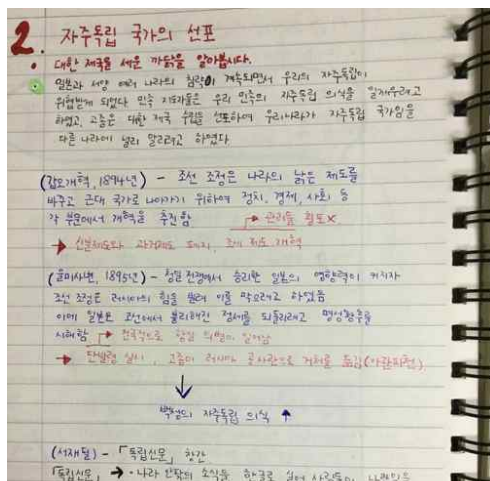 2. 자주독립 국가의 선포
• 대한 제국을 세운 까닭을 알아봅시다.
일본과 서양 여러 나라의 침략이 계속되면서 우리의 자주독립이
위협받게 되었다. 민족 지도자들은 우리 민족의 자주독립 의식을 일깨우려고
하였고, 고종은 대한 제국 수립을 선포하여 우리나라가 자주독립 국가임을
다른 나라에 널리 알리려고 하였다
(갑오개혁, 1894년) - 조선 조정은 나라의 낡은 제도를
바꾸고 근대 국가로 나아가기 위하여 정치, 경제, 사회 등
각 부문에서 개혁을 추진함 → 관리들 횡포X
→ 신분제도와 과거제도 폐지, 조세 제도 개혁
(을미사변, 1895년) - 청일전쟁에서 승리한 일본의 영향력이 커지자
조선 조정은 러시아의 힘을 빌려 이를 막으려고 하였음
이에 일본은 조선에서 불리해진 정세를 되돌리려고 명성황후를
시해함 → 전국적으로 항일 의병이 일어남
→ 단발령 실시, 고종이 러시아 공사관으로 거처를 옮김(아관파천)
↓
백성의 자주독립 의식 ↑
(서재필) - 「독립신문」 창간
「독립신문」 → • 나라 안팎의 소식을 한글로 실어 사람들이